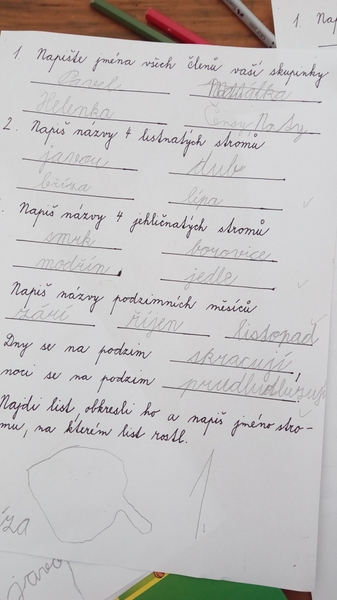 1. Nap
1. Napište jména všech členů vaší skupinky
Pavel
Helenka
2. Napiš názvy 4 listnatých stromů
javor dub
bříza lípa
Napiš názvy 4 jehličnatých stromů
smrk borovice
modřín jedle
Napiš názvy podzimních měsíců
září říjen listopad
Dny se na podzim skracují,
noci se na podzim
Najdi list, obkresli ho a napiš jméno stro-
mu, na kterém list rostl.